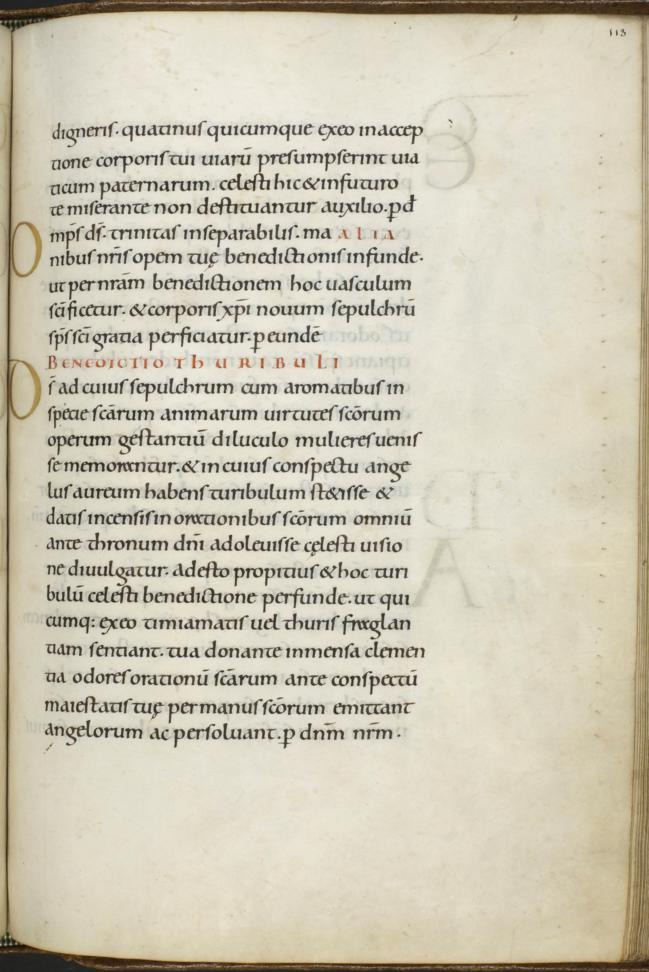 113
digneris· quatinus quicumque exeo inaccep
tione corporis tui uiarū presumpserint uia
ticum paternarum. celesti hic & infuturo
te miserante non destituantur auxilio. ꝑd
Omp̄s d̄s. trinitas inseparabilis. ma ALIA
nibus nr̄is opem tuę benedictionis infunde·
ut per nr̄am benedictionem hoc uasculum
sc̄ificetur. & corporis xp̄i nouum sepulchrū
sp̄s sc̄i gratia perficiatur. ꝑ eundē
BENEDICTIO THURIBULI
Ds̄ ad cuius sepulchrum cum aromatibus in
specie sc̄arum animarum uirtutes sc̄orum
operum gestantiū diluculo mulieres uenis
se memorantur. & in cuius conspectu ange
lus aureum habens turibulum stetisse &
datis incensis in orationibus sc̄orum omniū
ante thronum dn̄i adoleuisse cęlesti uisio
ne diuulgatur. adesto propitius & hoc turi
bulū celesti benedictione perfunde. ut qui
cumq: exeo timiamatis uel thuris fraglan
tiam sentiant. tua donante inmensa clemen
tia odores orationū sc̄arum ante conspectū
maiestatis tuę per manus sc̄orum emittant
angelorum ac persoluant. ꝑ dn̄m nr̄m·